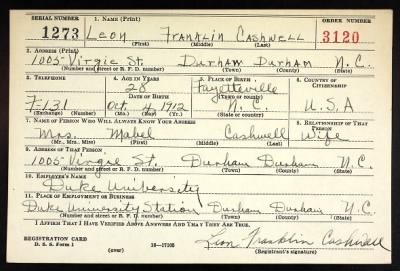 SERIAL NUMBER 1. NAME (Print) ORDER NUMBER
1273 Leon Franklin Cashwell 3120
(First) (Middle) (Last)
2. ADDRESS (Print)
1005 Virgie St. Durham Durham N.C.
(Number and street or R. F. D. number) (Town) (County) (State)
3. TELEPHONE 4. AGE IN YEARS 5. PLACE OF BIRTH 6. COUNTRY OF CITIZENSHIP
28 Fayetteville
DATE OF BIRTH (Town or county)
F-131 Oct. 4 1912 N.C. U.S.A
(Exchange) (Number) (Mo.) (Day) (Yr.) (State or country)
7. NAME OF PERSON WHO WILL ALWAYS KNOW YOUR ADDRESS 8. RELATIONSHIP OF THAT PERSON
Mrs. Mabel Cashwell Wife
(Mr., Mrs., Miss) (First) (Middle) (Last)
9. ADDRESS OF THAT PERSON
1005 Virgie St. Durham Durham N.C.
(Number and street or R. F. D. number) (Town) (County) (State)
10. EMPLOYER'S NAME
Duke University
11. PLACE OF EMPLOYMENT OR BUSINESS
Duke University Station Durham Durham N.C.
(Number and street or R. F. D. number) (Town) (County) (State)
I AFFIRM THAT I HAVE VERIFIED ABOVE ANSWERS AND THAT THEY ARE TRUE.
REGISTRATION CARD Leon Franklin Cashwell
D. S. S. Form 1 (over) 16—17105 (Registrant's signature)